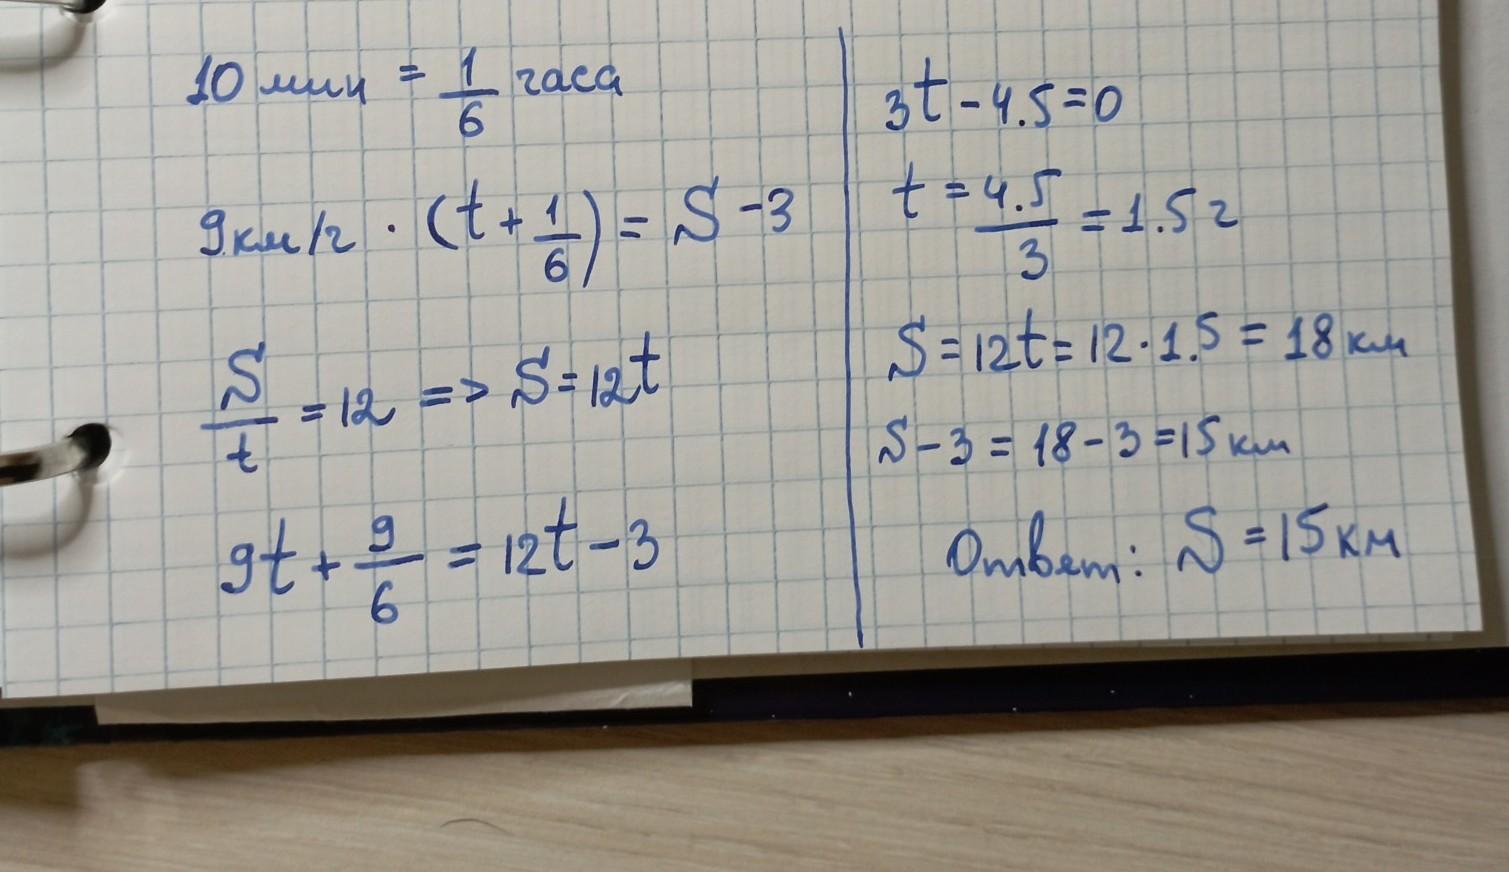 10 мин = 1/6 часа
9 км/ч · (t + 1/6) = S - 3
S/t = 12 => S = 12t
9t + 9/6 = 12t - 3
3t - 4.5 = 0
t = 4.5/3 = 1.5 ч
S = 12t = 12 · 1.5 = 18 км
S - 3 = 18 - 3 = 15 км
Ответ: S = 15 км